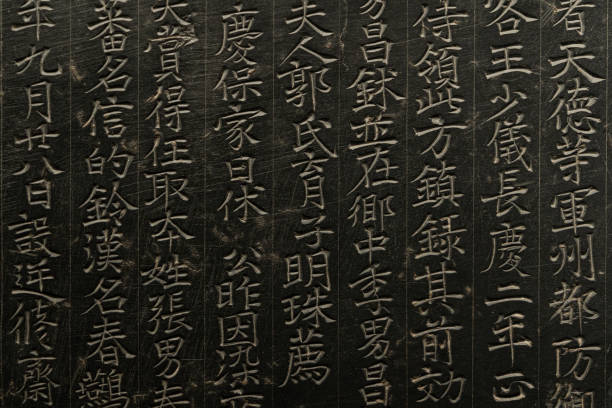 者天德等軍州都防御
客王少儀長慶二年正
侍領此方鎮録其前効
男昌鉢並在鄉中季男昌
夫人郭氏育子明珠薦
慶保家日休 公昨因染
賞得任取本姓張男
蕃名信的鈴漢名春鸎
年九月廿八日設逆修齋